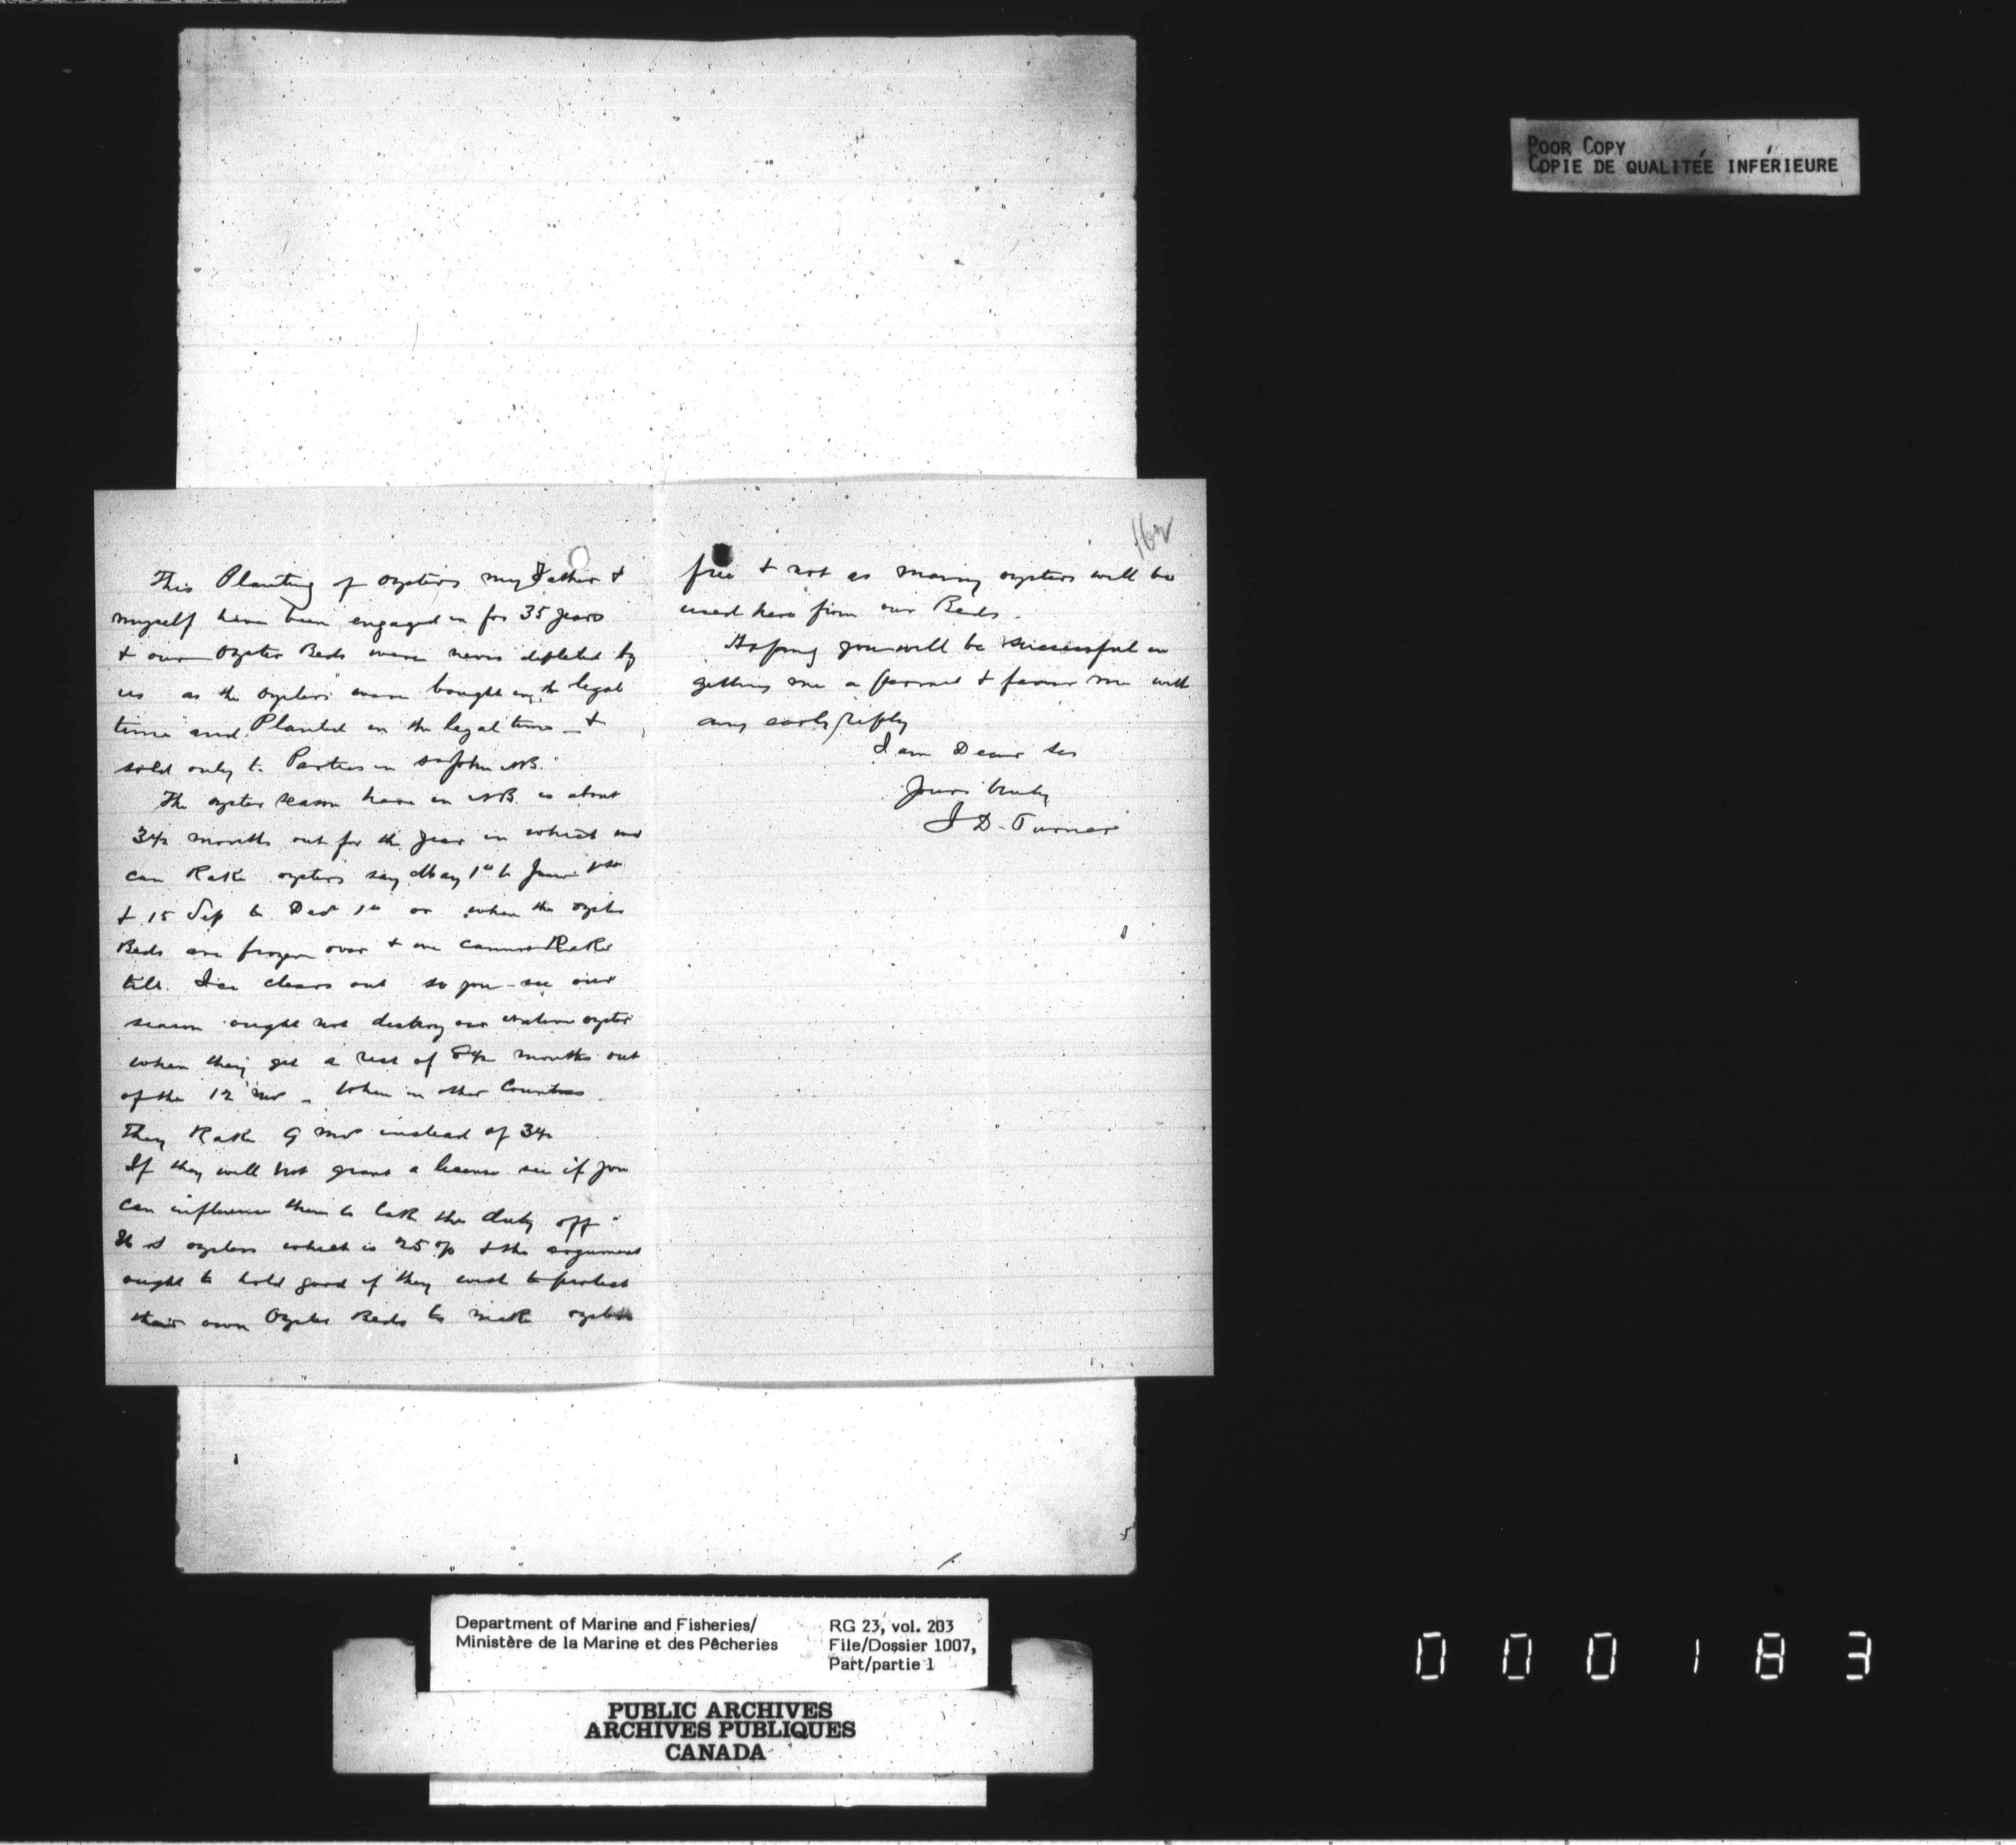 This Planting of oysters my Father &
myself have been engaged in for 35 years
& our Oyster Beds were never depleted by
us as the oysters were bought in the legal
time and Planted in the legal time &
sold only to Parties in St John NB.
The oyster season here in NB. is about
3½ months out for the year in which we
can Rake oysters say May 1st to June 1st
& 15 Sep to Dec 1st or when the oyster
Beds are frozen over & we cannot Rake
till Ice clears out so you see our
season ought not destroy our native oyster
when they get a rest of 8½ months out
of the 12 mos When in other Countries
They Rake 9 mos instead of 3½
If they will not grant a license see if you
can influence them to take the duty off
U S oysters which is 25 % & the argument
ought to hold good if they wish to protect
their own Oyster Beds to make oysters
162
free & not as many oysters will be
used here from our Beds.
Hoping you will be successful in
getting me a permit & favor me with
any early reply
I am Dear Sir
Yours truly
J D. Turner
POOR COPY
COPIE DE QUALITÉE INFÉRIEURE
Department of Marine and Fisheries/
Ministère de la Marine et des Pêcheries
RG 23, vol. 203
File/Dossier 1007,
Part/partie 1
PUBLIC ARCHIVES
ARCHIVES PUBLIQUES
CANADA
000183